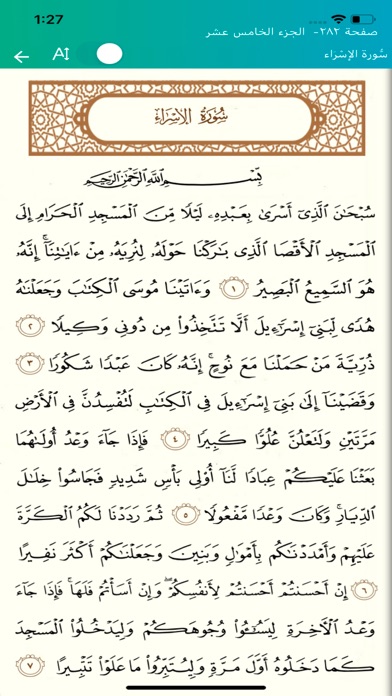 1:27
صفحة ٢٨٢- الجزء الخامس عشر
سُورة الإسْراء
AI
سُورَةُ الإِسْرَاءِ
بِسْمِ ٱللَّهِ ٱلرَّحْمَٰنِ ٱلرَّحِيمِ
سُبْحَٰنَ ٱلَّذِىٓ أَسْرَىٰ بِعَبْدِهِۦ لَيْلًا مِّنَ ٱلْمَسْجِدِ ٱلْحَرَامِ إِلَى
ٱلْمَسْجِدِ ٱلْأَقْصَا ٱلَّذِى بَٰرَكْنَا حَوْلَهُۥ لِنُرِيَهُۥ مِنْ ءَايَٰتِنَآ ۚ إِنَّهُۥ
هُوَ ٱلسَّمِيعُ ٱلْبَصِيرُ ١ وَءَاتَيْنَا مُوسَى ٱلْكِتَٰبَ وَجَعَلْنَٰهُ
هُدًى لِّبَنِىٓ إِسْرَٰٓءِيلَ أَلَّا تَتَّخِذُوا۟ مِن دُونِى وَكِيلًا ٢
ذُرِّيَّةَ مَنْ حَمَلْنَا مَعَ نُوحٍ ۚ إِنَّهُۥ كَانَ عَبْدًا شَكُورًا ٣
وَقَضَيْنَآ إِلَىٰ بَنِىٓ إِسْرَٰٓءِيلَ فِى ٱلْكِتَٰبِ لَتُفْسِدُنَّ فِى ٱلْأَرْضِ
مَرَّتَيْنِ وَلَتَعْلُنَّ عُلُوًّا كَبِيرًا ٤ فَإِذَا جَآءَ وَعْدُ أُولَىٰهُمَا
بَعَثْنَا عَلَيْكُمْ عِبَادًا لَّنَآ أُو۟لِى بَأْسٍ شَدِيدٍ فَجَاسُوا۟ خِلَٰلَ
ٱلدِّيَارِ ۚ وَكَانَ وَعْدًا مَّفْعُولًا ٥ ثُمَّ رَدَدْنَا لَكُمُ ٱلْكَرَّةَ
عَلَيْهِمْ وَأَمْدَدْنَٰكُم بِأَمْوَٰلٍ وَبَنِينَ وَجَعَلْنَٰكُمْ أَكْثَرَ نَفِيرًا
٦ إِنْ أَحْسَنتُمْ أَحْسَنتُمْ لِأَنفُسِكُمْ ۖ وَإِنْ أَسَأْتُمْ فَلَهَا ۚ فَإِذَا جَآءَ
وَعْدُ ٱلْءَاخِرَةِ لِيَسُۥٓـُٔوا۟ وُجُوهَكُمْ وَلِيَدْخُلُوا۟ ٱلْمَسْجِدَ
كَمَا دَخَلُوهُ أَوَّلَ مَرَّةٍ وَلِيُتَبِّرُوا۟ مَا عَلَوْا۟ تَتْبِيرًا ٧